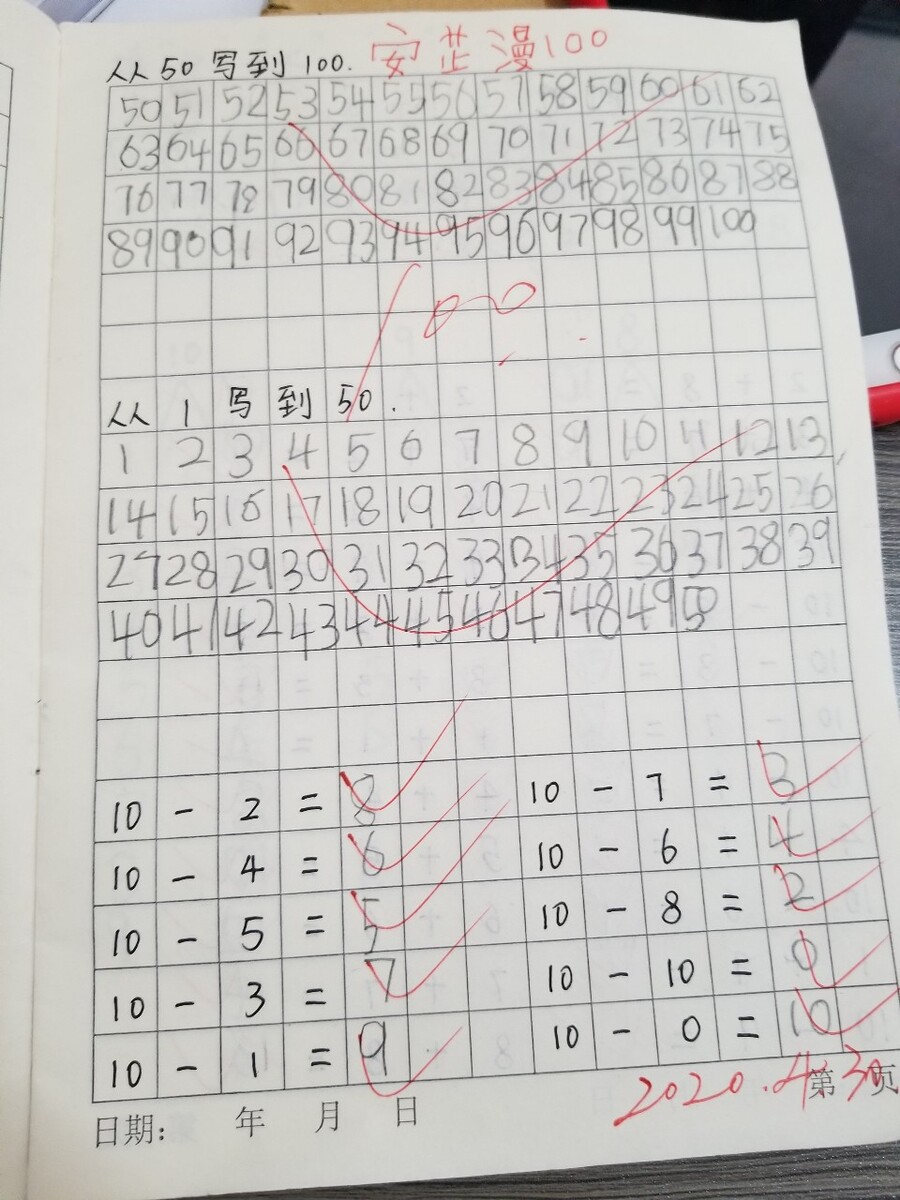 从从50写到100. 安芷漫100
50 51 52 53 54 55 56 57 58 59 60 61 62
63 64 65 66 67 68 69 70 71 72 73 74 75
76 77 78 79 80 81 82 83 84 85 86 87 88
89 90 91 92 93 94 95 96 97 98 99 100
100
从 1 写 到 50.
1 2 3 4 5 6 7 8 9 10 11 12 13
14 15 16 17 18 19 20 21 22 23 24 25 26
27 28 29 30 31 32 33 34 35 36 37 38 39
40 41 42 43 44 45 46 47 48 49 50
10 - 2 = 8 10 - 7 = 3
10 - 4 = 6 10 - 6 = 4
10 - 5 = 5 10 - 8 = 2
10 - 3 = 7 10 - 10 = 0
10 - 1 = 9 10 - 0 = 10
日期: 年 月 日 第 页
2020.4.30